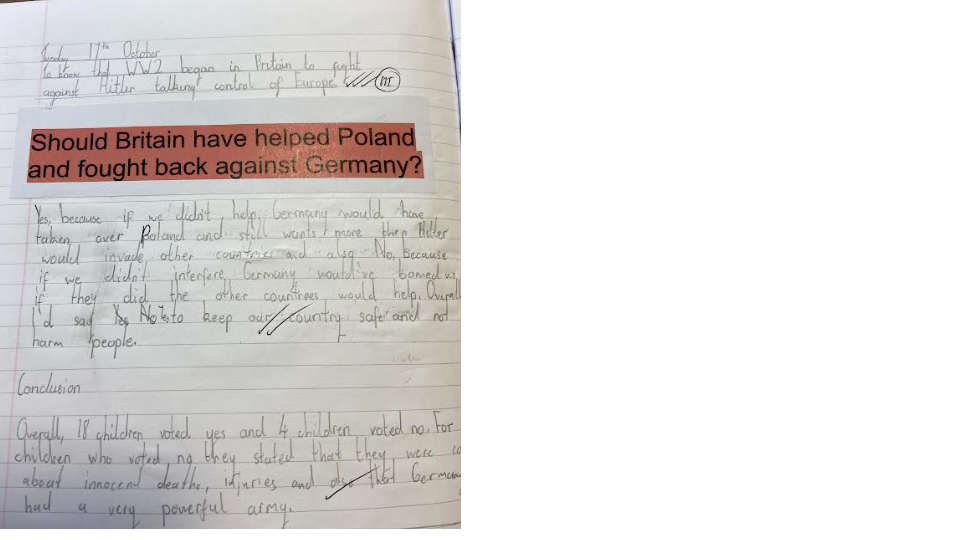 Tuesday 17th October
To know that WW2 began in Britain to fight
against Hitler talking control of Europe
Should Britain have helped Poland
and fought back against Germany?
Yes, because if we didn't help Germany would have
taken over Poland and still wants more then Hitler
would invade other countries and also No, because
if we didn't interfere Germany would've bomed us,
if they did the other countrees would help. Overall
I'd say No to keep our country safe and not
harm people.
Conclusion
Overall, 18 children voted yes and 4 children voted no. For
children who voted no they stated that they were co
about innocend deaths, injuries and also that German
had a very powerful army.